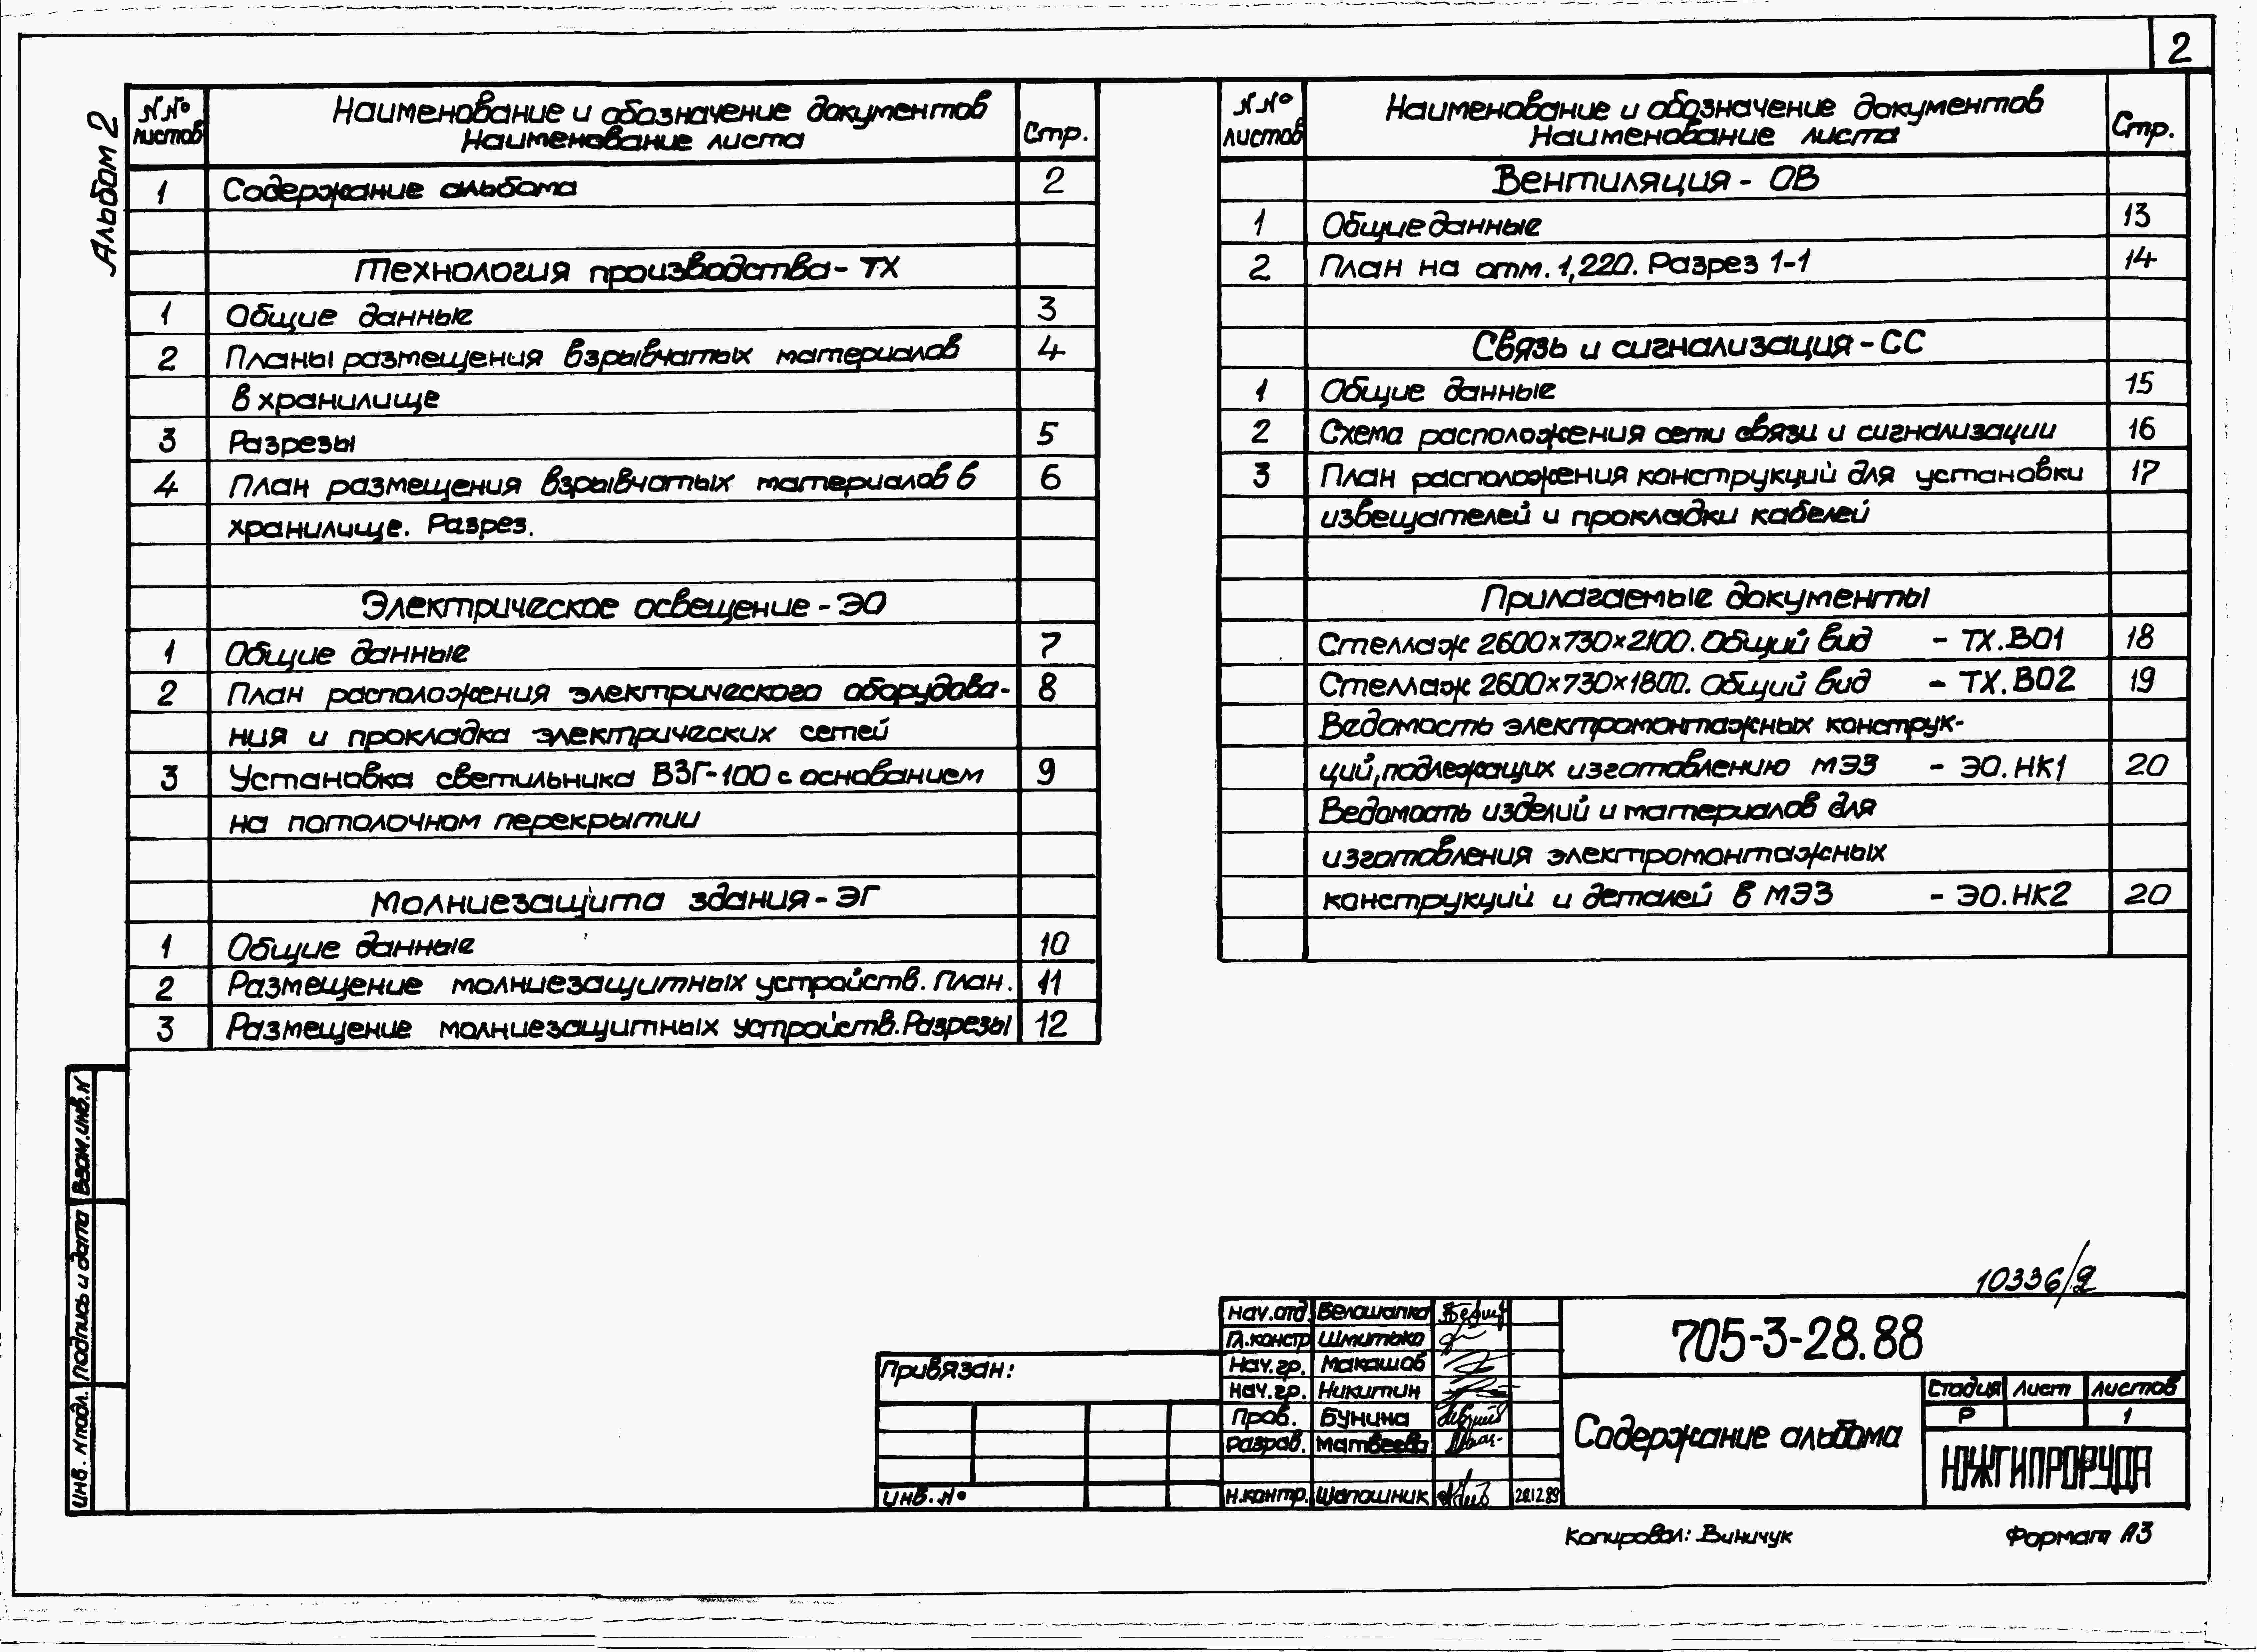 2
Альбом 2
NNº листов
Наименование и обозначение документов
Наименование листа
Стр.
1 Содержание альбома 2
Технология производства - ТХ
1 Общие данные 3
2 Планы размещения взрывчатых материалов 4
в хранилище
3 Разрезы 5
4 План размещения взрывчатых материалов в 6
хранилище. Разрез.
Электрическое освещение - ЭО
1 Общие данные 7
2 План расположения электрического оборудова- 8
ния и прокладка электрических сетей
3 Установка светильника ВЗГ-100 с основанием 9
на потолочном перекрытии
Молниезащита здания - ЭГ
1 Общие данные 10
2 Размещение молниезащитных устройств. План. 11
3 Размещение молниезащитных устройств. Разрезы 12
NNº листов
Наименование и обозначение документов
Наименование листа
Стр.
Вентиляция - ОВ
1 Общие данные 13
2 План на отм. 1,220. Разрез 1-1 14
Связь и сигнализация - СС
1 Общие данные 15
2 Схема расположения сети связи и сигнализации 16
3 План расположения конструкций для установки 17
извещателей и прокладки кабелей
Прилагаемые документы
Стеллаж 2600×730×2100. Общий вид - ТХ.В01 18
Стеллаж 2600×730×1800. Общий вид - ТХ.В02 19
Ведомость электромонтажных конструк-
ций, подлежащих изготовлению МЭЗ - ЭО.НК1 20
Ведомость изделий и материалов для
изготовления электромонтажных
конструкций и деталей в МЭЗ - ЭО.НК2 20
Взам.инв.N
Подпись и дата
Инв. N подл.
10336/2
Привязан:
Инв. Nº
Нач.отд. Белошапка
Гл.констр Шмитько
Нач.гр. Макашов
Нач.гр. Никитин
Пров. Бунина
Разраб. Матвеева
Н.контр. Шапошник 28.12.89
705-3-28.88
Содержание альбома
Стадия Лист Листов
Р 1
ЮЖГИПРОРУДА
Копировал: Виничук
Формат А3